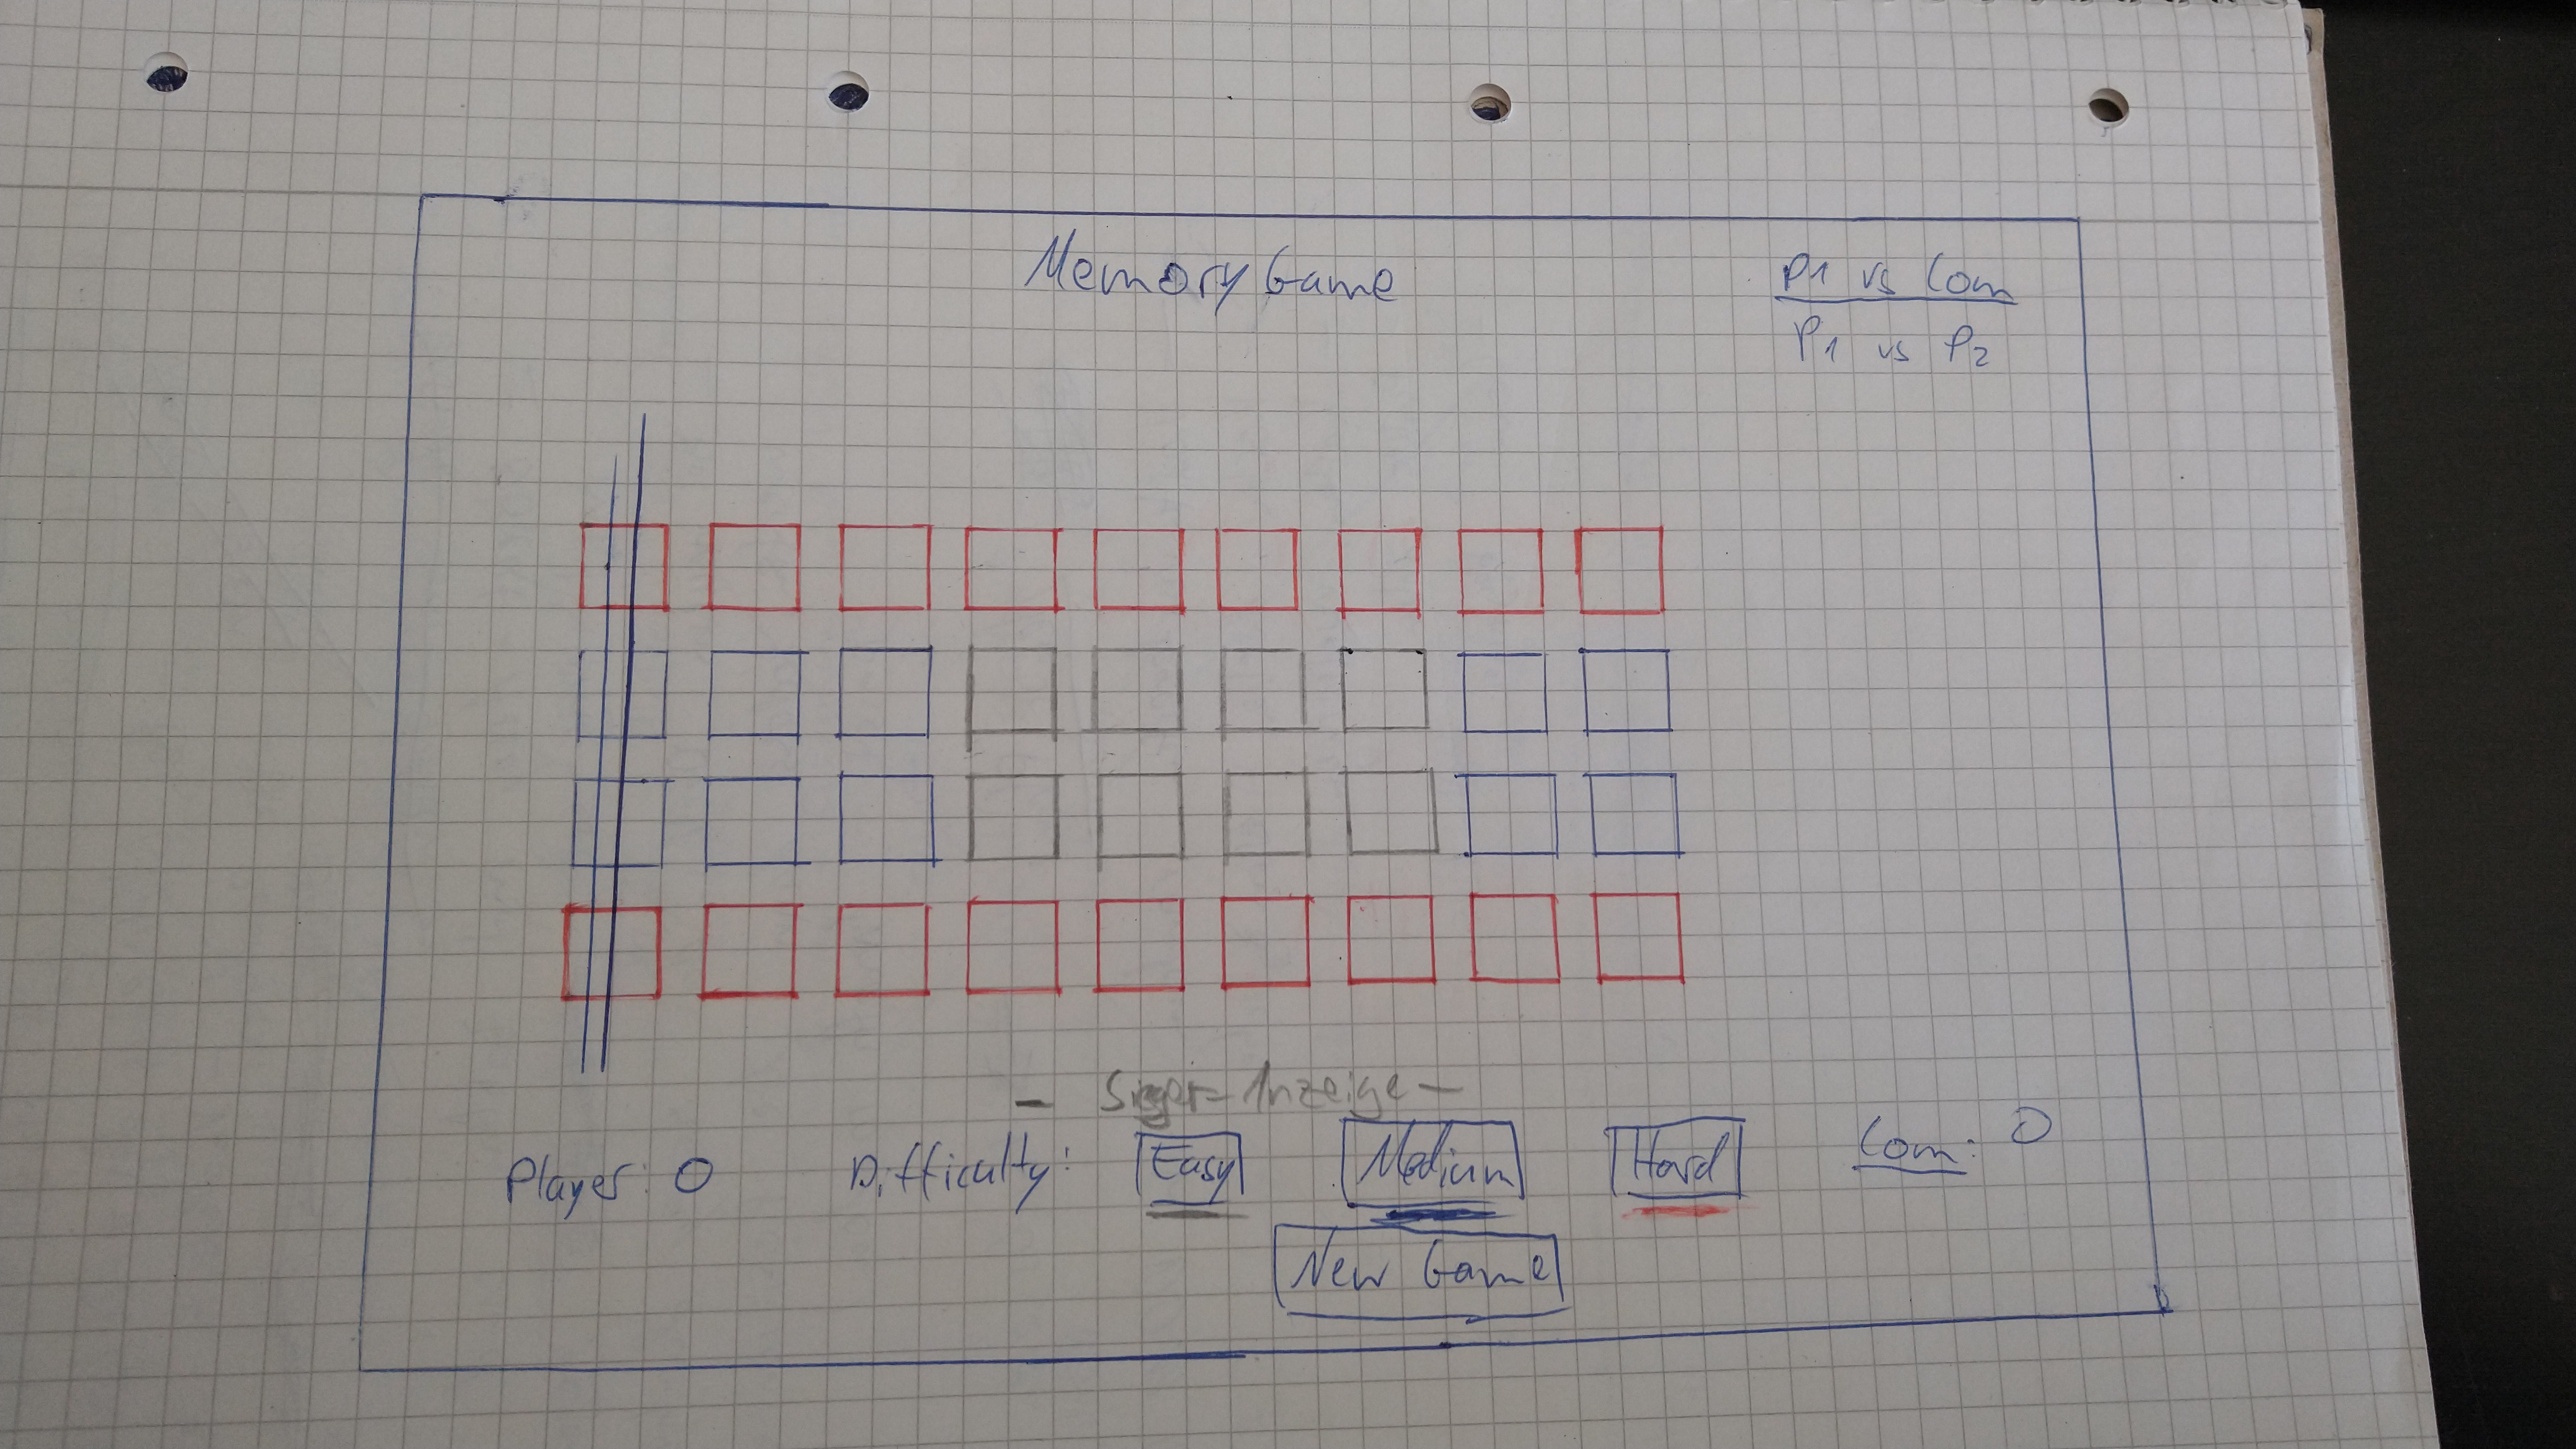 Memory Game
P1 vs Com
P1 vs P2
- Sieger-Anzeige -
Player: 0 Difficulty: Easy Medium Hard Com: 0
New Game